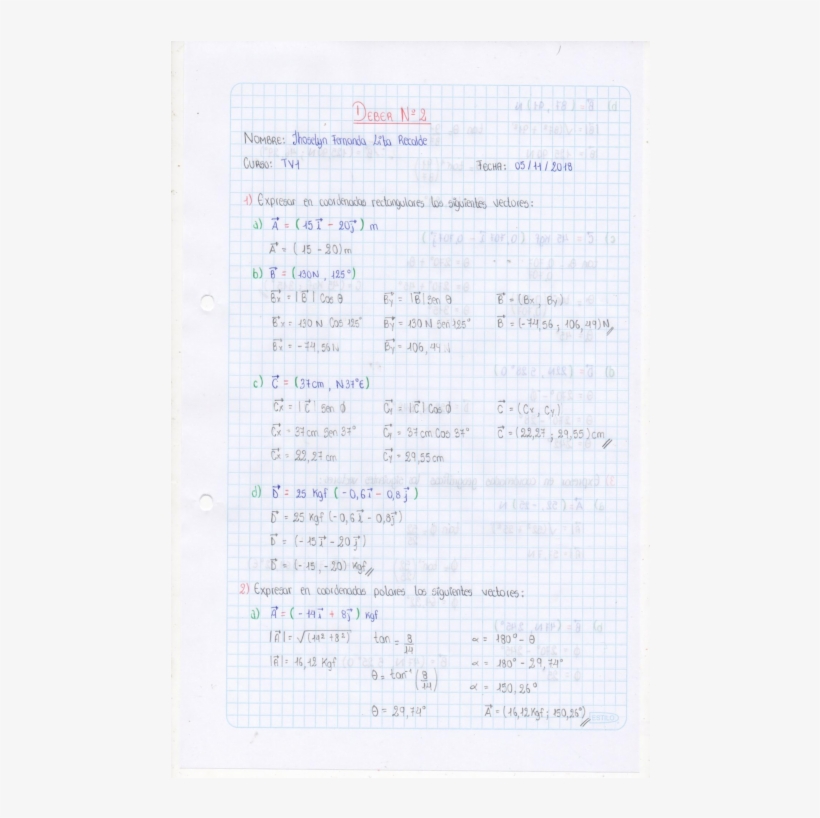 DEBER Nº 2
NOMBRE: Jhoselyn Fernanda Lita Recalde
CURSO: TV1 FECHA: 05/11/2018
1) Expresar en coordenadas rectangulares los siguientes vectores:
a) A⃗ = (15i⃗ - 20j⃗) m
A⃗ = (15 - 20)m
b) B⃗ = (130N, 125°)
B⃗x = |B⃗| Cos θ B⃗y = |B⃗| Sen θ B⃗ = (Bx; By)
B⃗x = 130 N Cos 125° B⃗y = 130 N Sen 125° B⃗ = (-74,56; 106,49)N//
B⃗x = -74,56N B⃗y = 106,49 N
c) C⃗ = (37cm, N37°E)
C⃗x = |C⃗| Sen ϕ C⃗y = |C⃗| Cos ϕ C⃗ = (Cx, Cy)
C⃗x = 37cm Sen 37° C⃗y = 37cm Cos 37° C⃗ = (22,27; 29,55)cm//
C⃗x = 22,27cm C⃗y = 29,55cm
d) D⃗ = 25 Kgf (-0,6i⃗ - 0,8j⃗)
D⃗ = 25 Kgf (-0,6i⃗ - 0,8j⃗)
D⃗ = (-15i⃗ - 20j⃗)
D⃗ = (-15; -20) Kgf//
2) Expresar en coordenadas polares los siguientes vectores:
a) A⃗ = (-14i⃗ + 8j⃗) Kgf
|A⃗| = √(14² + 8²) tan = 8/14 α = 180° - θ
|A⃗| = 16,12 Kgf θ = tan⁻¹(8/14) α = 180° - 29,74°
α = 150,26°
θ = 29,74° A⃗ = (16,12Kgf; 150,26°)//